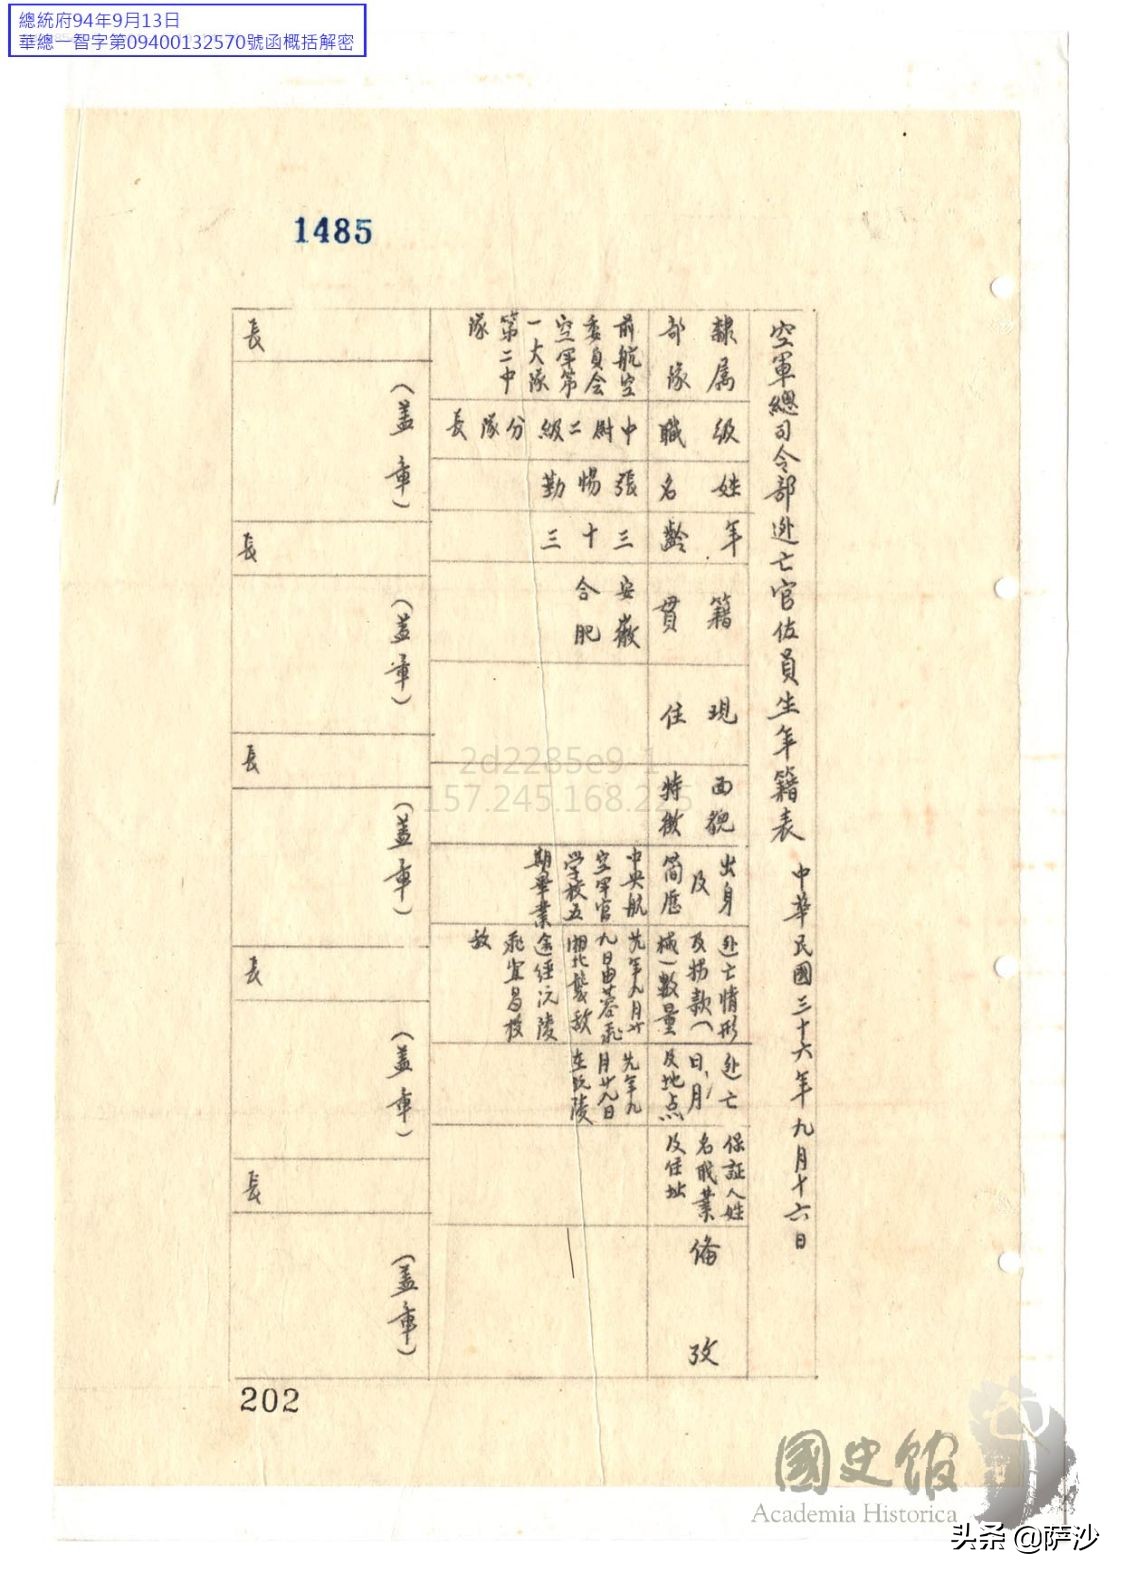 總統府94年9月13日
華總一智字第09400132570號函概括解密
1485
空軍總司令部逃亡官佐員生年籍表 中華民國三十六年九月十六日
隸屬
部隊
前航空
委員會
空軍第
一大隊
第二中
隊
級
職
中尉二級分隊長
姓
名
張惕勤
年
齡
三十三
籍
貫
安徽
合肥
現
住
面貌
特徵
出身
及
簡歷
中央航
空軍官
学校五
期畢業
逃亡情形
及拐款(
械)數量
先年九月廿
九日由蓉飛
湘北襲敵
途經沅陵
飛宜昌投
敌
逃亡
日、月
及地点
先年九
月廿九日
在沅陵
保証人姓
名職業
及住址
備
攷
長
(盖章)
長
(盖章)
長
(盖章)
長
(盖章)
長
(盖章)
202
2d2285e9-1
157.245.168.225
國史館
Academia Historica
头条 @萨沙